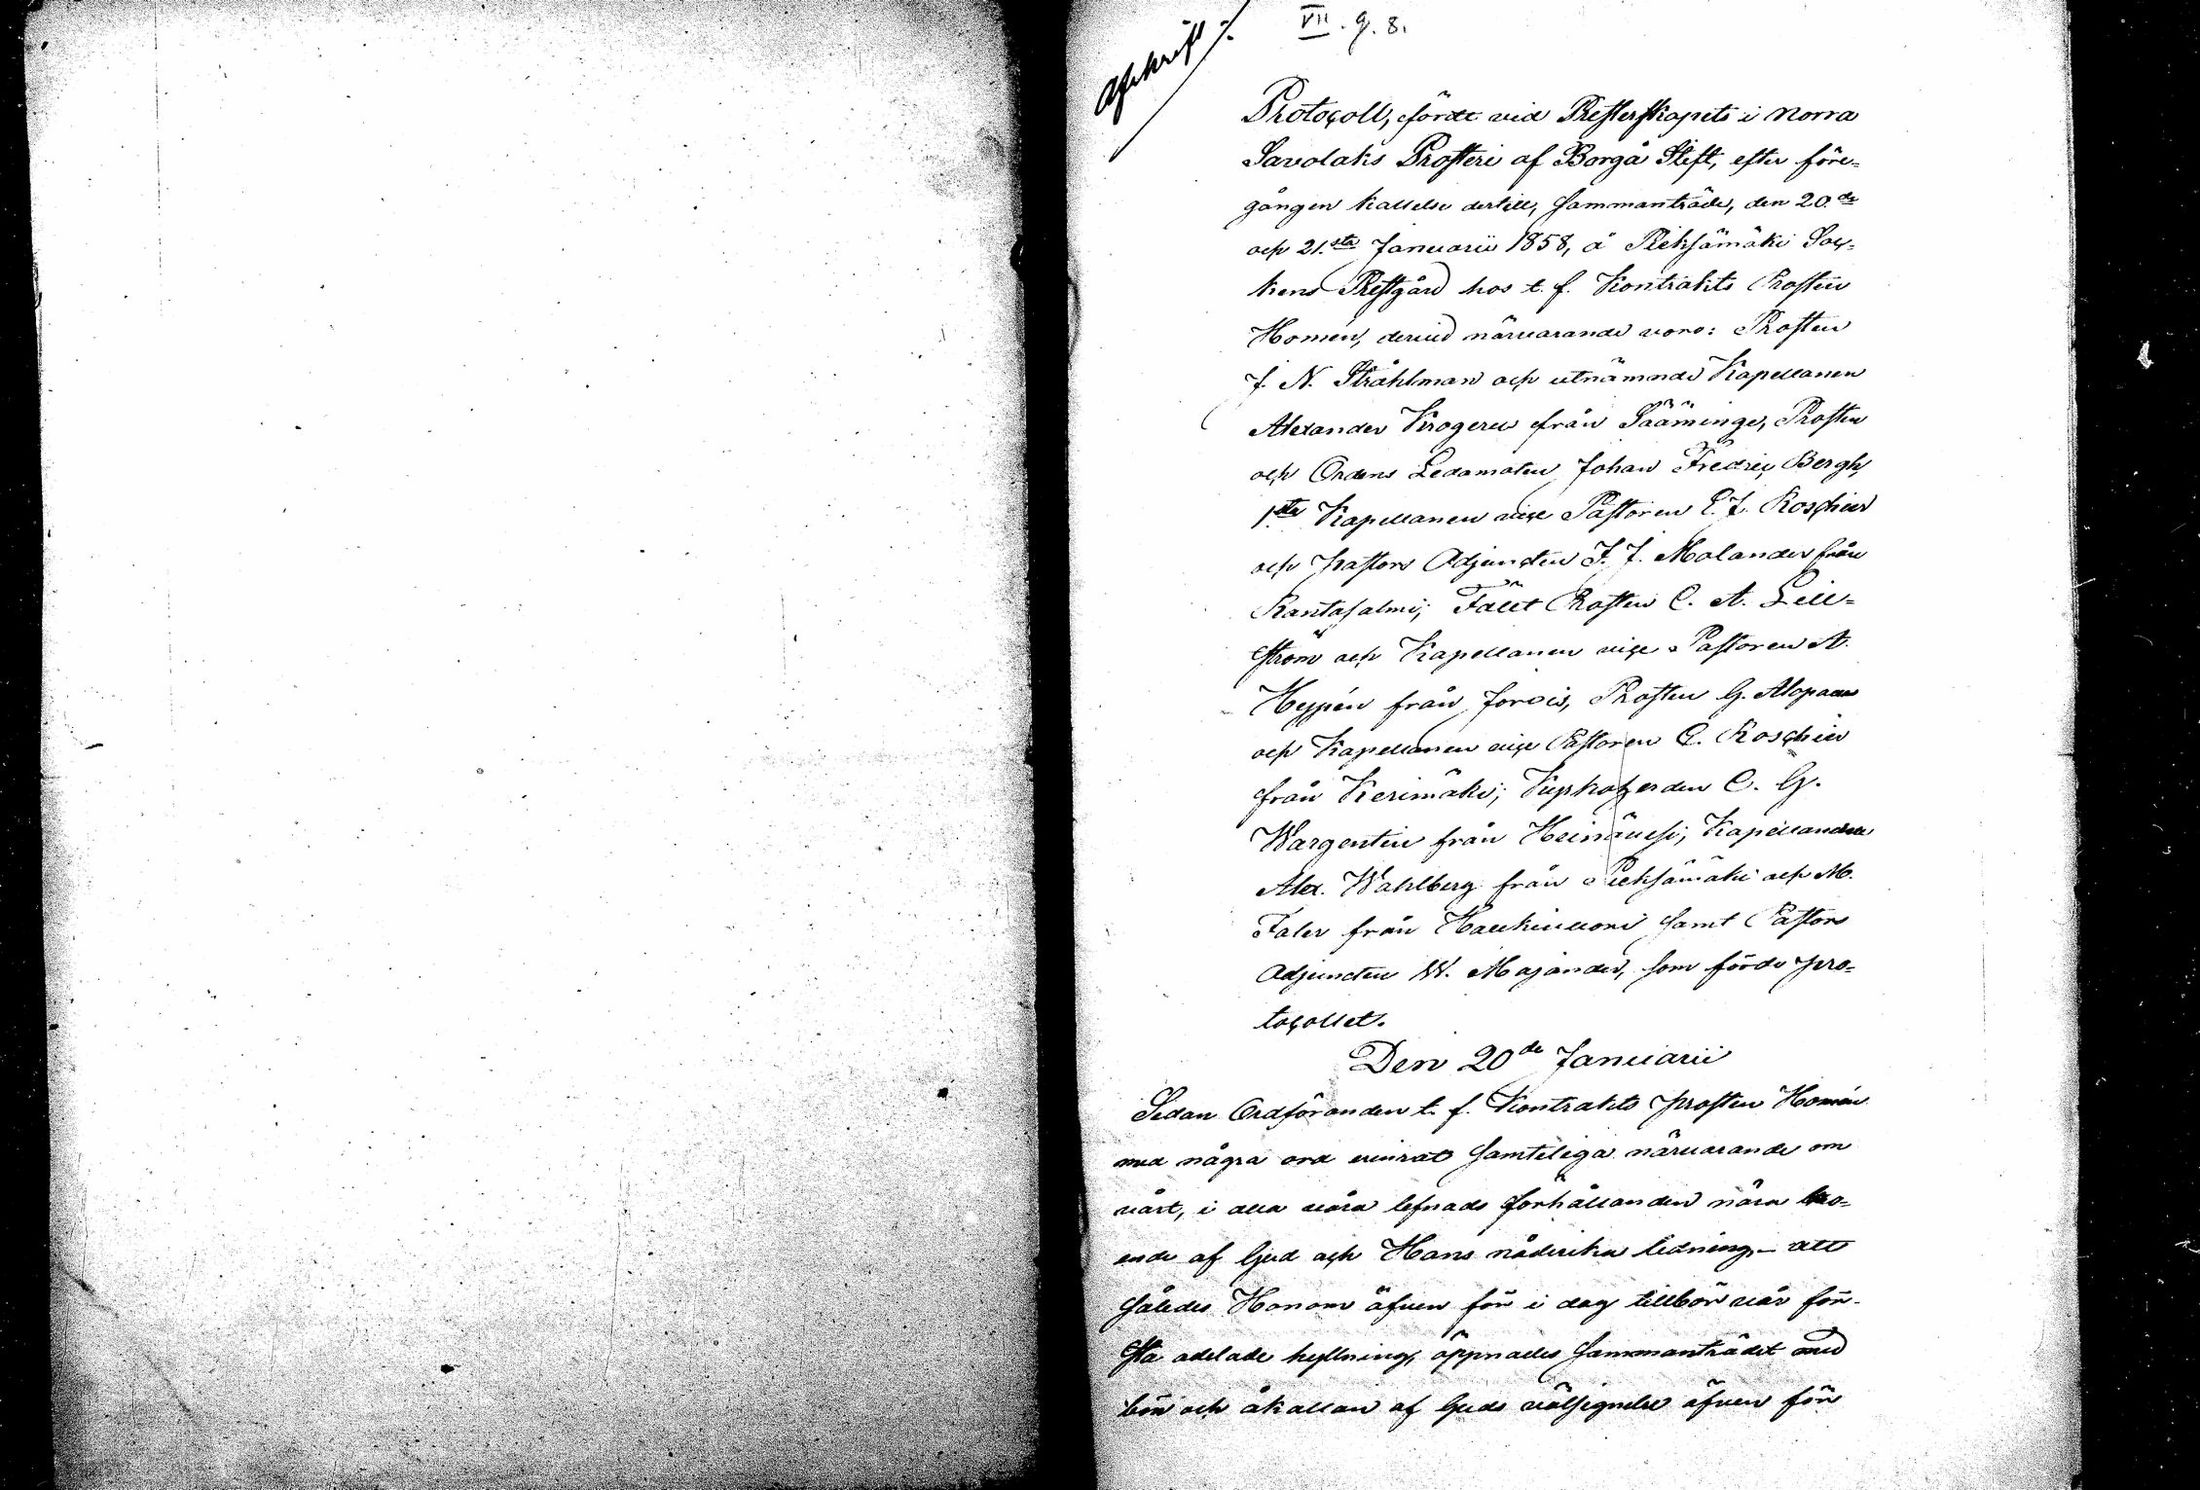 VII. g. 8.
Afskrift ./.
Protocoll, fördt vid Presterskapets i Norra
Savolaks Prosteri af Borgå Stift, efter före-
gången kallelse dertill, sammanträde, den 20.de
och 21.sta Januarii 1858, å Pieksämäki Soc-
kens Prestgård hos t. f. Kontrakts Prosten
Homén, dervid närvarande voro: Prosten
J. N. Stråhlman och utnämnde Kapellanen
Alexander Krogerus från Sääminge, Prosten
och Ordens Ledamoten Johan Fredric Bergh,
1.ste Kapellanen vice Pastoren C. J. Roschier
och pastors Adjuncten F. J. Molander från
Rantasalmi; Fält Prosten C. A. Lill-
ström och Kapellanen vice Pastoren A.
Heppén från Jorois, Prosten G. Alopaeus
och Kapellanen vice Pastoren C. Roschier
från Kerimäki; Kyrkoherden C. G.
Wargentin från Heinävesi; Kapellanerne
Alex. Wahlberg från Pieksämäki och M.
Faler från Haukivuori samt Pastors
Adjuncten W. Majander, som förde pro-
tocollet.
Den 20de Januarii
Sedan Ordföranden t. f. Kontrakts prosten Homén
med några ord erinrat samteliga närvarande om
vårt, i alla våra lefnads förhållanden nära bero-
ende af Gud och Hans nåderika ledning, - att
således Honom äfven för i dag tillbör vår för-
sta adelade hyllning, öppnades sammanträdet med
bön och åkallan af Guds välsignelse äfven för